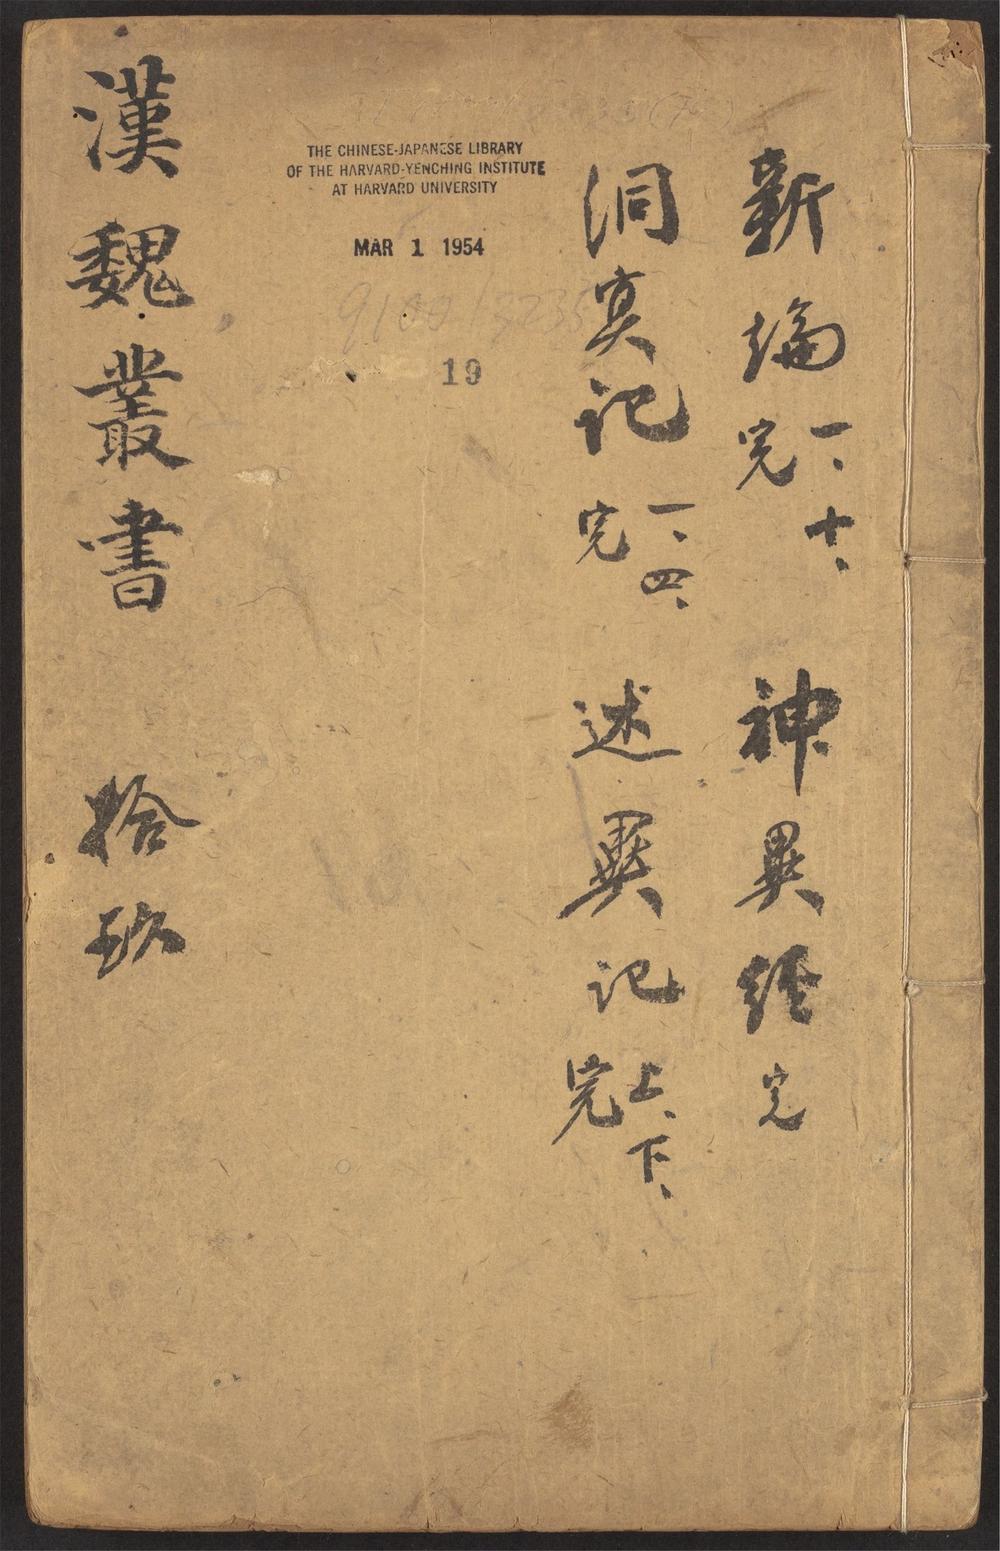 新論 一、十、完 神異経 完
洞冥記 一、四、完 述異記 上、下、完
漢魏叢書 拾玖
THE CHINESE-JAPANESE LIBRARY
OF THE HARVARD-YENCHING INSTITUTE
AT HARVARD UNIVERSITY
MAR 1 1954
19